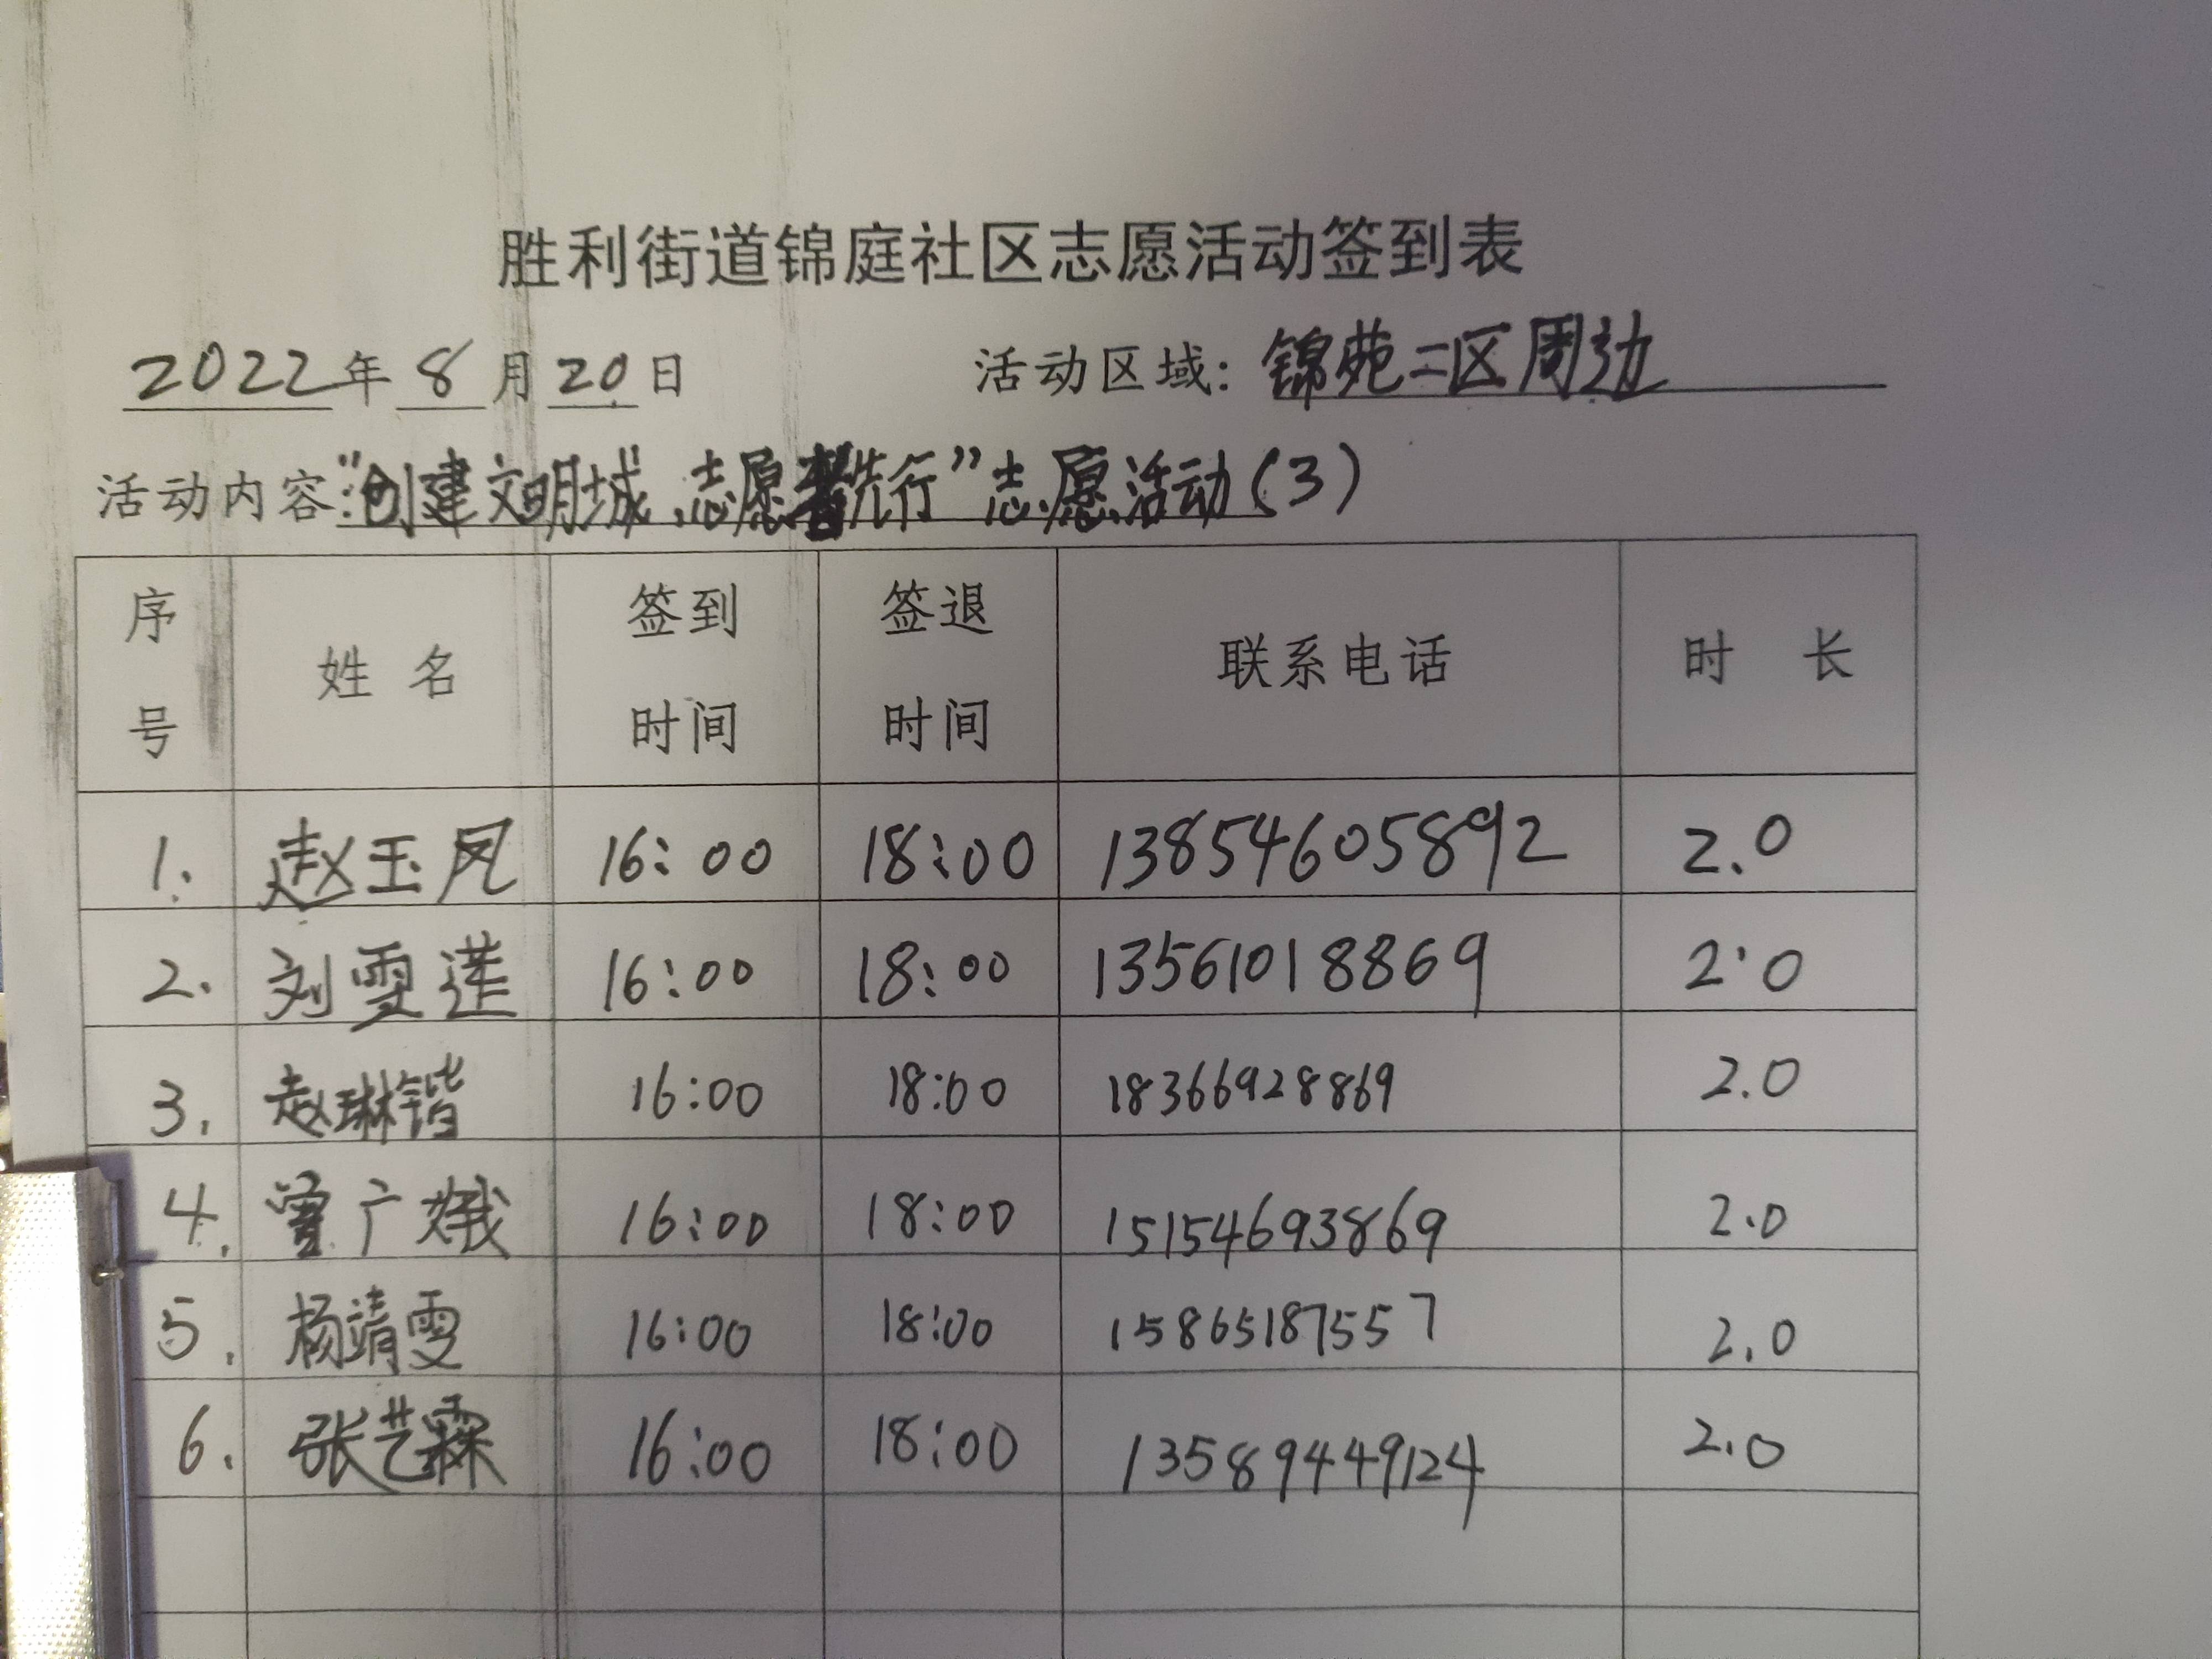 胜利街道锦庭社区志愿活动签到表
2022年8月20日 活动区域：锦苑二区周边
活动内容："创建文明城、志愿者先行"志愿活动(3)
序号 姓名 签到时间 签退时间 联系电话 时长
1. 赵玉凤 16:00 18:00 13854605892 2.0
2. 刘雪莲 16:00 18:00 13561018869 2.0
3. 赵琳锴 16:00 18:00 18366928869 2.0
4. 曾广娥 16:00 18:00 15154693869 2.0
5. 杨靖雯 16:00 18:00 15865187557 2.0
6. 张艺霖 16:00 18:00 13589449124 2.0